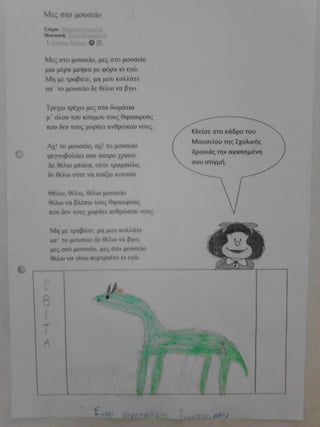 Μες στο μουσείο
Στίχοι:
Μουσική:
1.
Μες στο μουσείο, μες στο μουσείο
μια μέρα μπήκα με φόρα κι εγώ.
Μη με τραβάτε, μη μου κολλάτε
απ΄ το μουσείο δε θέλω να βγω.
Τρέχω τρέχω μες στα δωμάτια
μ΄ όλου του κόσμου τους θησαυρούς
που δεν τους χωράει ανθρώπου νους.
Αχ! το μουσείο, αχ! το μουσείο
φεγγοβολάει σαν άστρο χρυσό.
Δε θέλω μπάλα, ούτε τραμπάλα,
δε θέλω ούτε να παίξω κουτσό.
Θέλω, θέλω, θέλω μουσείο
θέλω να βλέπω τους θησαυρούς
που δεν τους χωράει ανθρώπου νους.
Μη με τραβάτε, μη μου κολλάτε
απ΄ το μουσείο δε θέλω να βγω,
μες στο μουσείο, μες στο μουσείο
θέλω να γίνω πορτραίτο κι εγώ.
Κλείσε στο κάδρο του
Μουσείου της Σχολικής
Χρονιάς την αγαπημένη
σου στιγμή.
ΕΒΙΤΑ